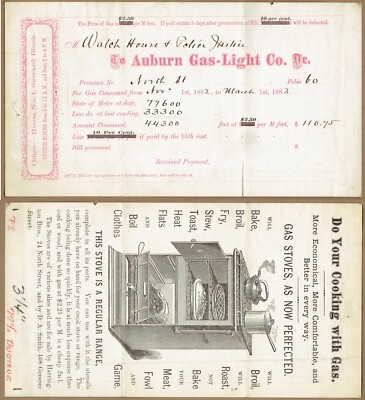 The Price of Gas is $2.50 per M feet. If paid within 5 days after presentation of Bill 10 per cent. will be deducted.
M Watch House & Police Justice
To Auburn Gas-Light Co. Dr.
Premises No North St Folio 60
For Gas Consumed from Nov 1st, 1882 to March 1st, 1883
State of Meter at date, 77600
Less do. at last cooking, 33300
Amount Consumed, 44300 feet at $2.50 per M feet, $ 110.75
Less 10 Per Cent. if paid by the 15th inst.
Bill presented
Received Payment,
Office: Room No. 1, Seward Block.
Do Your Cooking with Gas.
More Economical, More Comfortable, and
Better in every way.
GAS STOVES, AS NOW PERFECTED.
WILL
Bake,
Broil,
Fry,
Stew,
Toast,
Heat
Flats
AND
Boil
Clothes
WILL
Broil,
Roast,
AND
Bake
YOUR
Meat,
Fowl
AND
Game.
THIS STOVE IS A REGULAR RANGE,
complete in all its parts. You can use with it the utensils
you already have on hand for your cook stove or range. The
cooking being done so quickly, it is much less expense than
coal or wood, and with gas at $2.25 per M is a cheap fuel.
The Stoves are of various sizes and are for sale by Harring-
ton Bros., 24 North Street, and by D. A. Smith, 106 Genesee
Street.
3¼"